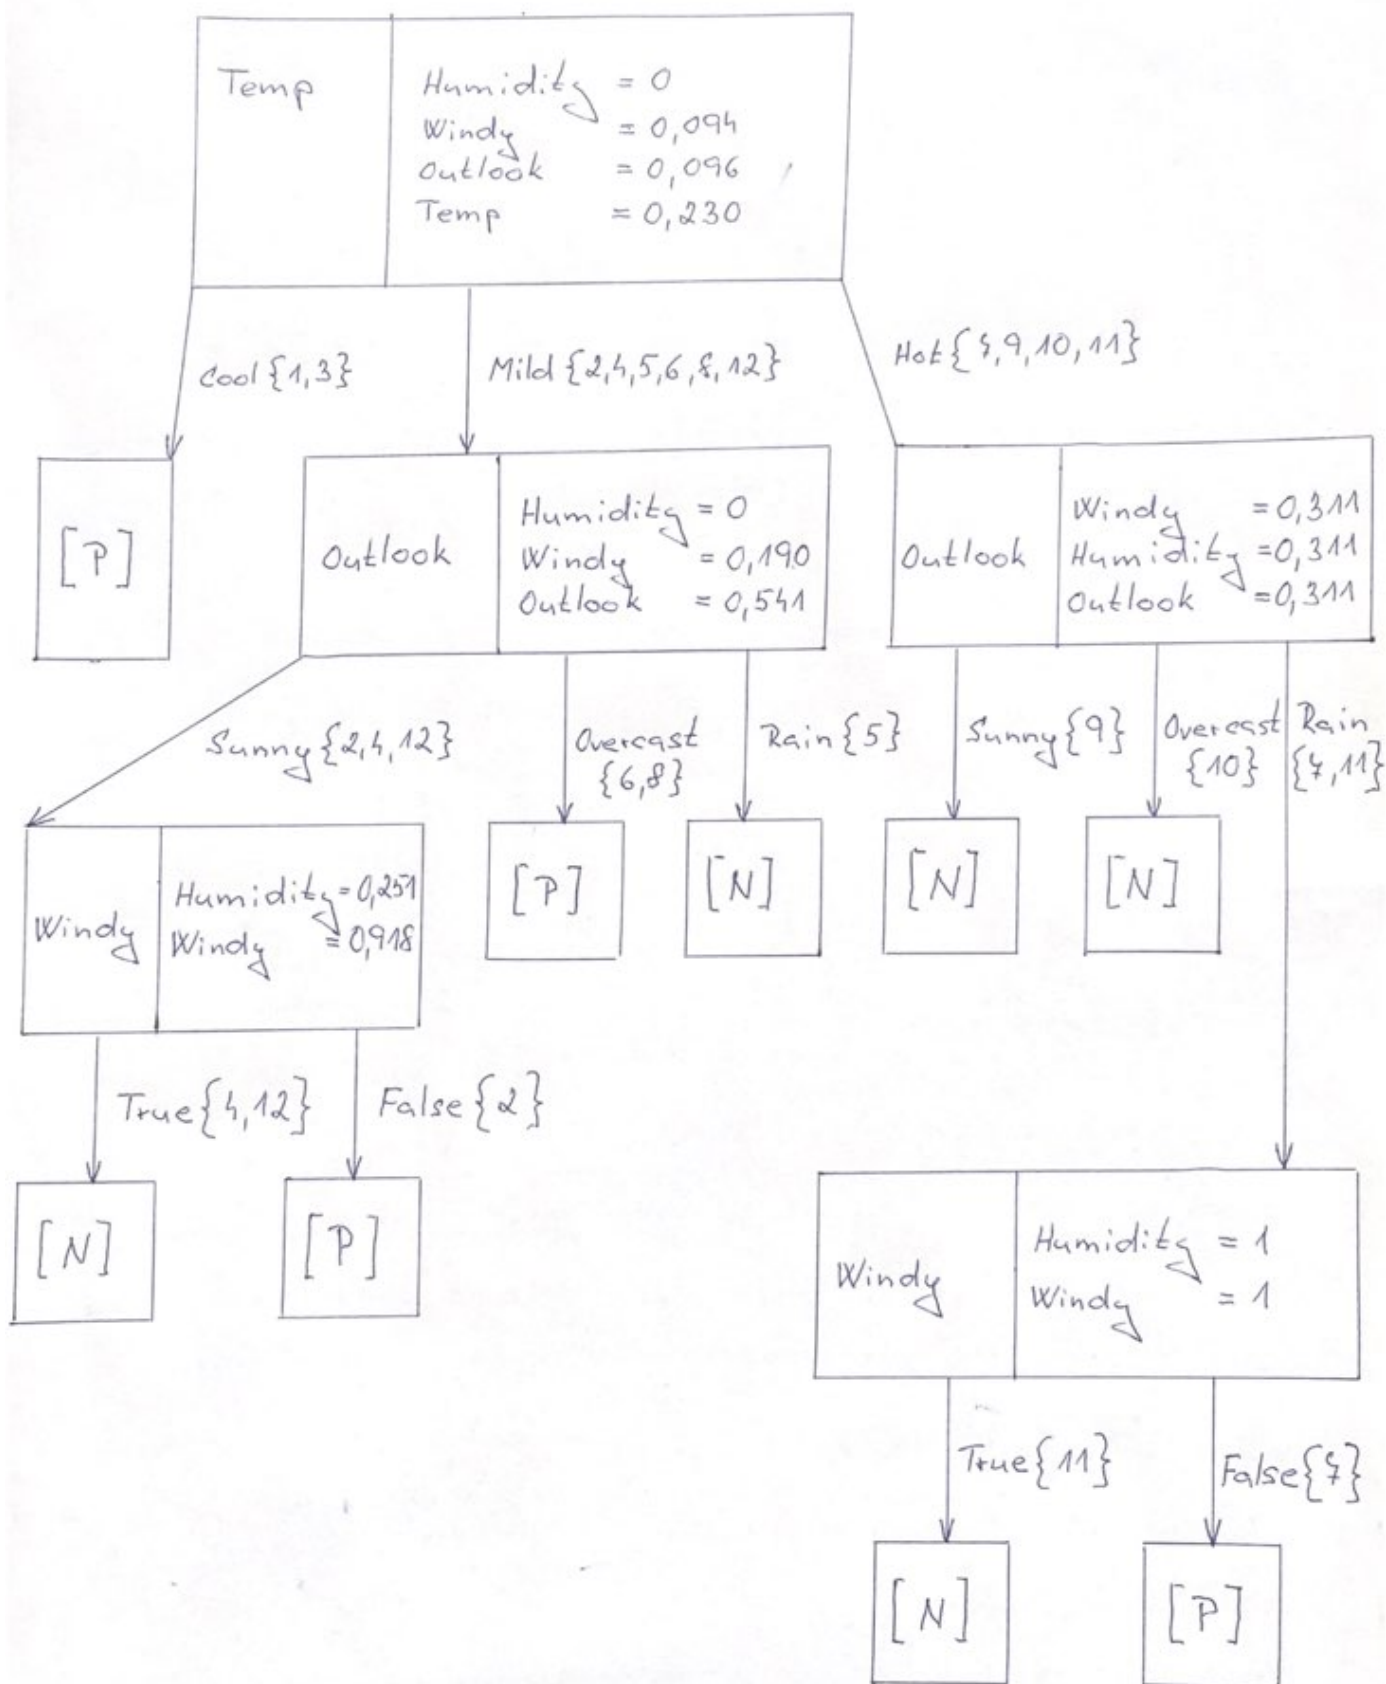 Temp
Humidity = 0
Windy = 0,094
Outlook = 0,096
Temp = 0,230
Cool {1,3}
Mild {2,4,5,6,8,12}
Hot {7,9,10,11}
[P]
Outlook
Humidity = 0
Windy = 0,190
Outlook = 0,541
Outlook
Windy = 0,311
Humidity = 0,311
Outlook = 0,311
Sunny {2,4,12}
Overcast
{6,8}
Rain {5}
Sunny {9}
Overcast
{10}
Rain
{7,11}
Windy
Humidity = 0,251
Windy = 0,918
[P]
[N]
[N]
[N]
True {4,12}
False {2}
[N]
[P]
Windy
Humidity = 1
Windy = 1
True {11}
False {7}
[N]
[P]